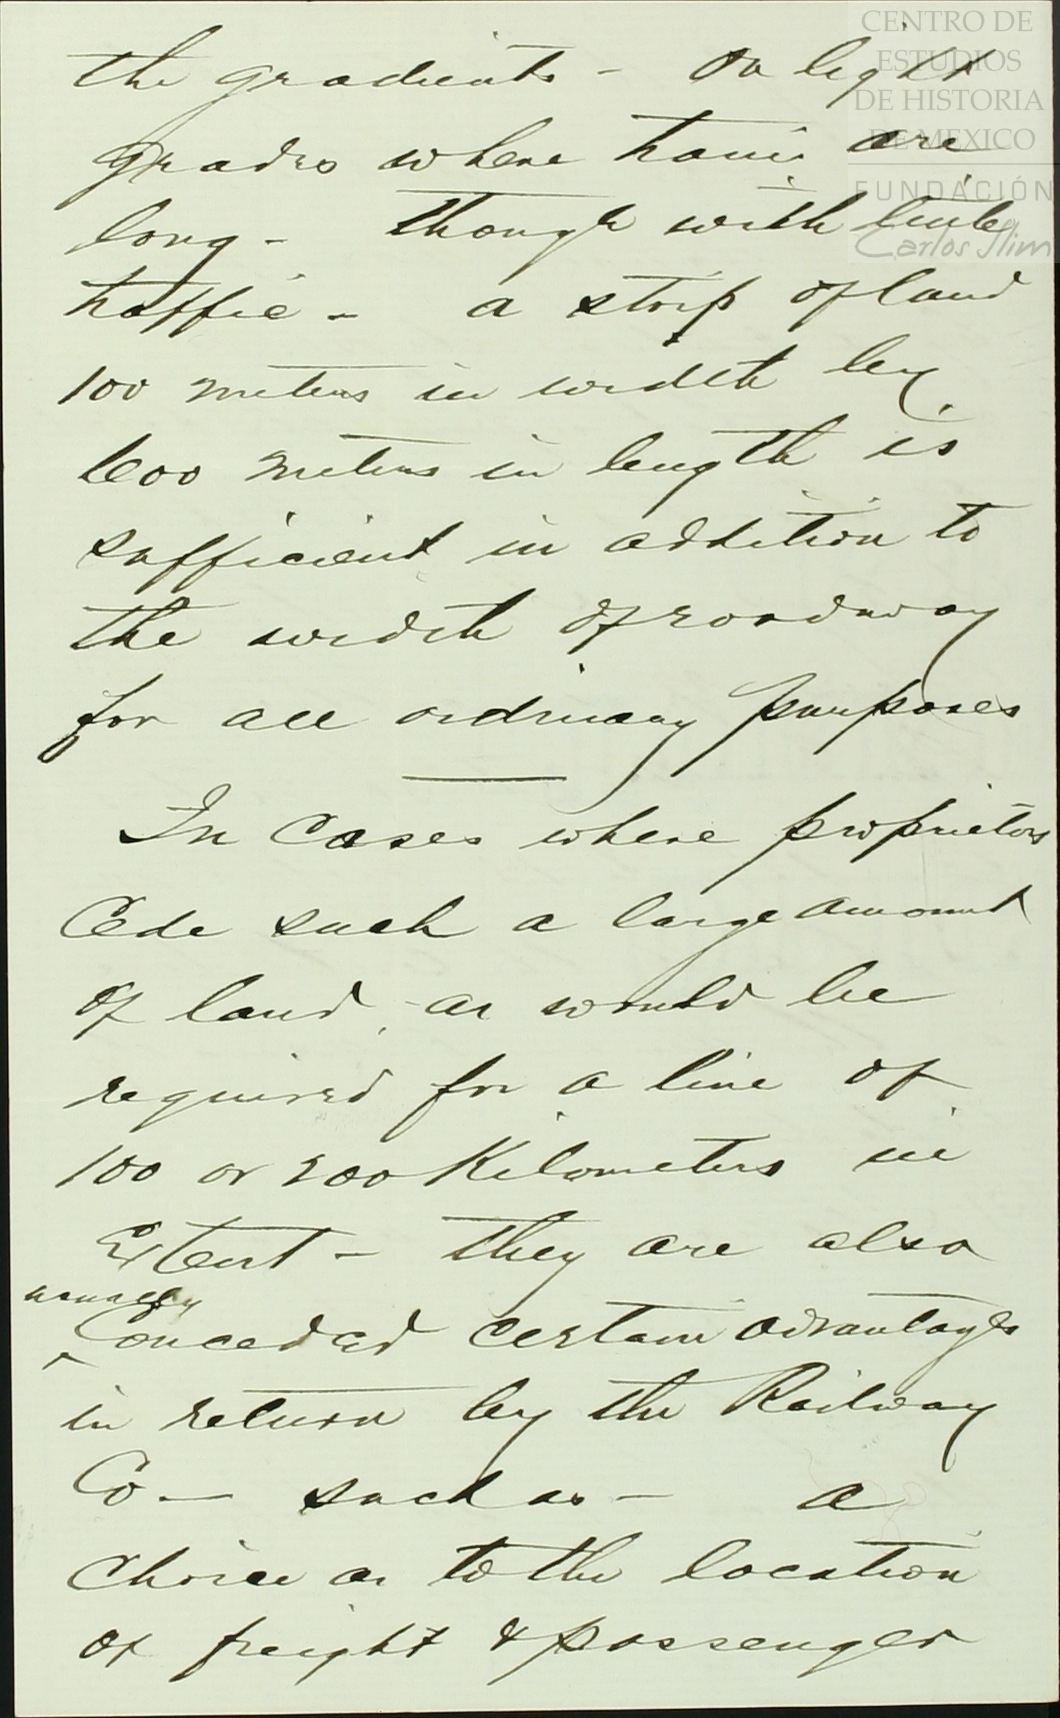 CENTRO DE
ESTUDIOS
DE HISTORIA
DE MEXICO
FUNDACIÓN
Carlos Slim
the gradients - On light
grades where trains are
long - though with little
traffic - a strip of land
100 meters in width by
600 meters in length is
sufficient in addition to
the width of roadway
for all ordinary purposes
In Cases where proprietors
Cede such a large amount
of land, as would be
required for a line of
100 or 200 Kilometers in
Extent - they are also
usually
Conceded certain advantages
in return by the Railway
Co - such as - a
choice as to the location
of freight & passenger